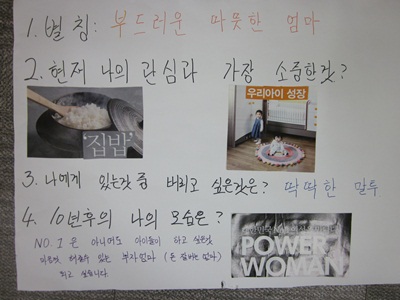 1. 별칭: 부드러운 따뜻한 엄마
2. 현재 나의 관심과 가장 소중한것?
'집밥'
우리아이 성장
3. 나에게 있는것 중 버리고 싶은것은? 딱딱한 말투
4. 10년후의 나의 모습은?
NO. 1 은 아니여도 아이들이 하고 싶은것
있는 부자엄마 (돈 엄마)
되고 싶습니다
POWER
WOMAN